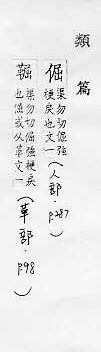 類篇
倔 渠勿切倔強
梗戾也文一（人部．p287）
䩭 渠勿切倔強梗戾
也倔或从革文一（革部．p98）